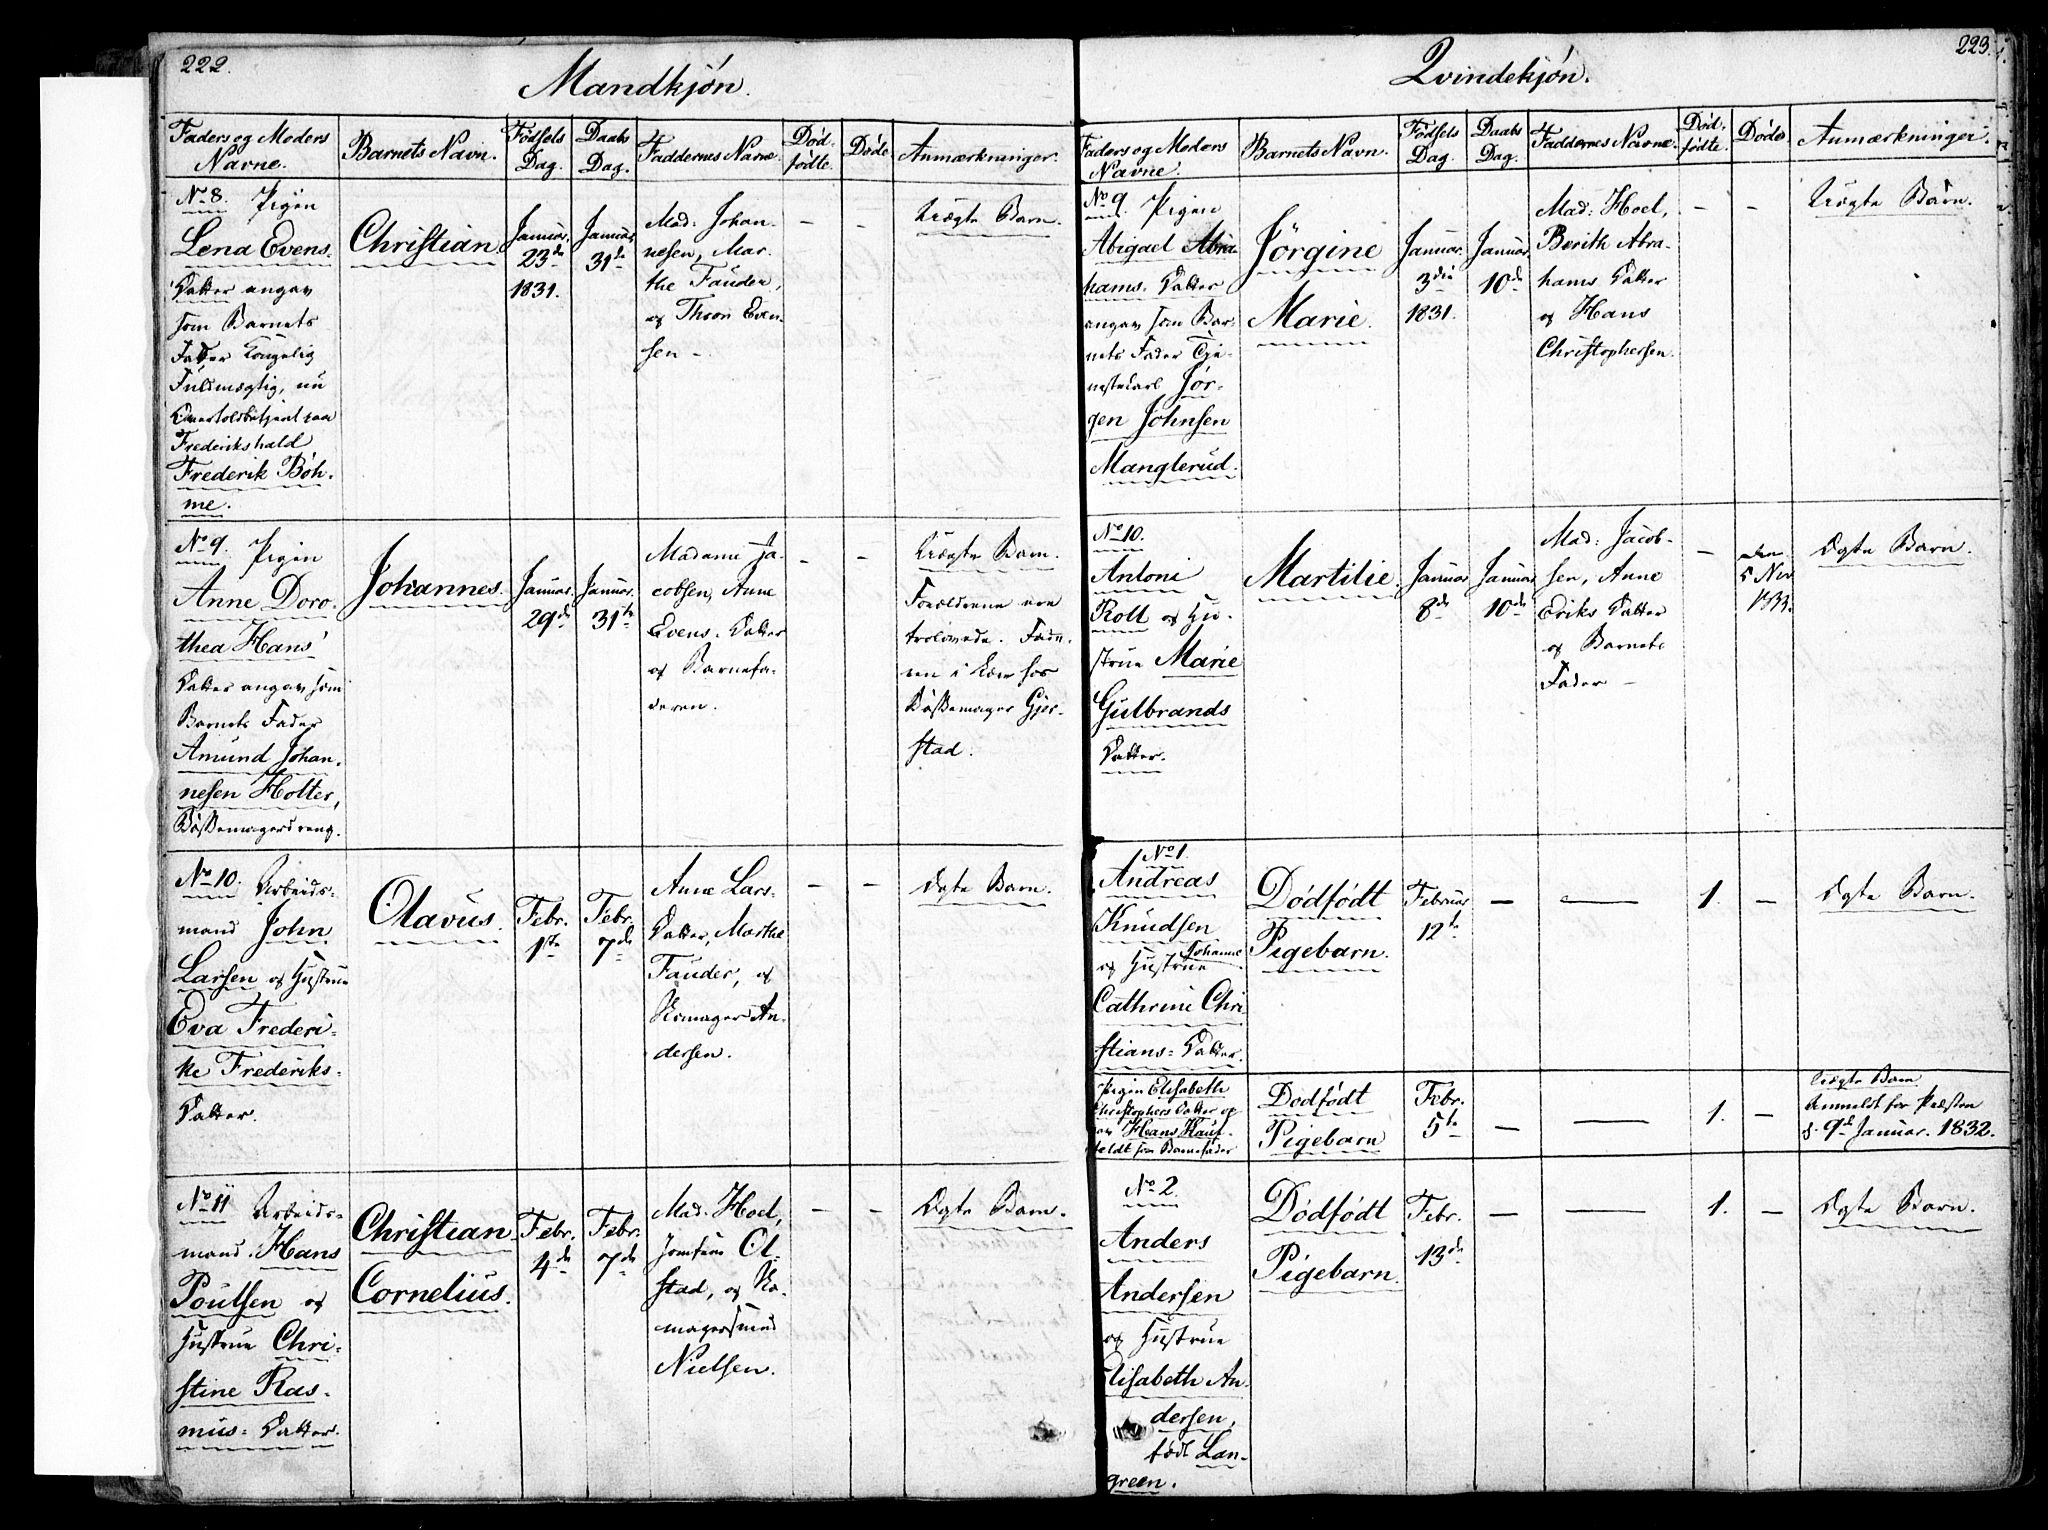 222.
Mandkjøn.
Faders og Moders
Navne.
Barnets Navn.
Fødsels
Dag.
Daabs
Dag.
Faddernes Navne
Død-
fødte.
Døde
Anmærkninger.
No 8. Pigen
Lena Evens-
Datter angav
som Barnets
Fader Kongelig
Fuldmægtig, nu
Overtoldbetjent paa
Frederikshald
Frederik Böh-
me.
Christian
Januar.
23de
1831.
Januar
31te
Mad: Johan-
nesen, Mar-
the Faúder,
og Thron Even-
sen -
-
-
Uægte Barn.
No 9. Pigen
Anne Doro-
thea Hans'
Datter angav som
Barnets Fader
Amund Johan-
nesen Holter,
Bøssemagerdreng.
Johannes.
Januar.
29de
Januar.
31te
Madame Ja-
cobsen, Anne
Evens-Datter
og Barnefa-
deren.
-
-
Uægte Barn.
Forældrene ere
trolovede. Fade-
ren i Lære hos
Bøssemager Gjer-
stad.
No 10. Arbeids-
mand John
Larsen og Hustrue
Eva Frederi-
ke Frederiks-
Datter.
Olavus.
Febr.
1ste
Febr.
7de
Anne Lars-
Datter, Marthe
Faúder, og
Skomager An-
dersen.
-
-
Ægte Barn.
No 11 Arbeids-
mand Hans
Poulsen og
Hustrue Chri-
stine Ras-
mus-Datter.
Christian
Cornelius.
Febr.
4de
Febr.
7de
Mad. Hoel,
Jomfrue Ol-
stad, og Sko-
magersvend
Nielsen.
-
-
Ægte Barn.
223.
Qvindekjøn.
Faders og Moders
Navne.
Barnets Navn.
Fødsels
Dag.
Daabs
Dag.
Faddernes Navne.
Død-
fødte.
Døde
Anmærkninger.
No 9. Pigen
Abigael Abra-
hams-Datter
angav som Bar-
nets Fader Tje-
nestekarl Jør-
gen Johnsen
Manglerud.
Jørgine
Marie.
Januar.
3die
1831.
Januar
10de
Mad: Hoel,
Berith Abra-
hams Datter
og Hans
Christophersen.
-
-
Uægte Barn.
No 10.
Antoni
Roll og Hu-
strue Marie
Gulbrands
Datter.
Martilie.
Januar
8de
Januar
10de
Mad: Jacob-
sen, Anne
Eriks Datter
og Barnets
Fader -
-
den
5 Nov
1833.
Ægte Barn.
No 1.
Andreas
Knudsen
og Hustrue Johanne
Cathrine Chri
stians-Datter.
Dødfødt
Pigebarn.
Februar
12te
-
-
1.
-
Ægte Barn.
Pigen Elisabeth
Christophers Datter og
Hans Hauf-
feldt som Barnefader
Dødfødt
Pigebarn
Febr.
5te
-
-
1.
-
Uægte Barn
Anmeldt for Præsten
d. 9de Januar. 1832.
No 2.
Anders
Andersen
og Hustrue
Elisabeth An-
dersen,
født Lan-
green.
Dødfødt
Pigebarn.
Febr.
13de
-
-
1.
-
Ægte Barn.